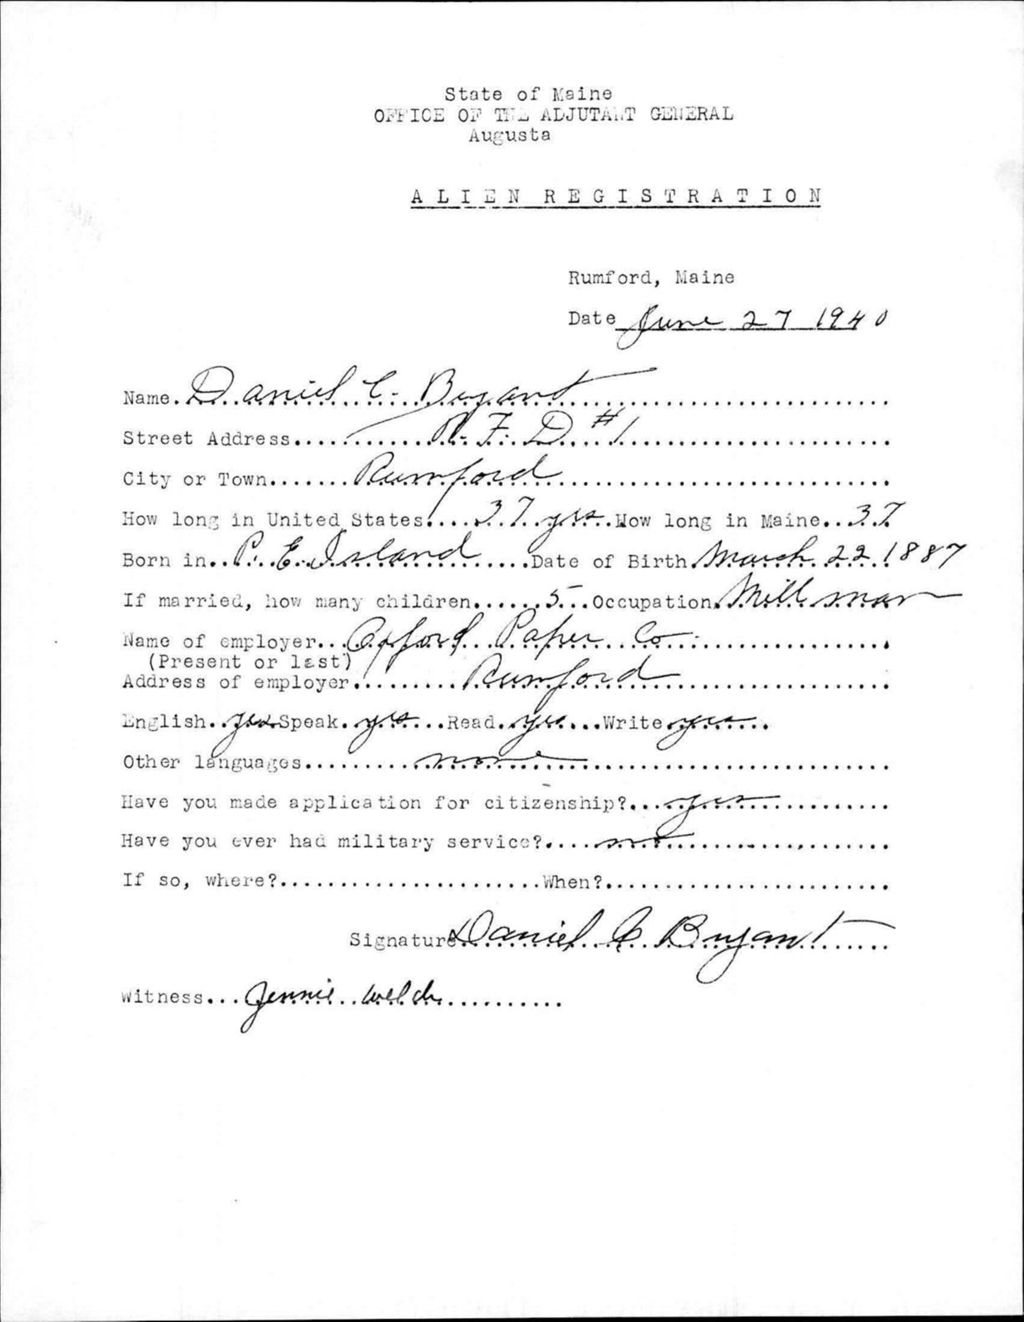 State of Maine
OFFICE OF THE ADJUTANT GENERAL
Augusta
ALIEN REGISTRATION
Rumford, Maine
Date June 27 1940
Name. Daniel C. Bryant
Street Address.... R. F. D #1
City or Town....... Rumford
How long in United States.... 37 yrs. How long in Maine.. 37
Born in.. P. E. Island ......Date of Birth March 22 1887
If married, how many children...... 5...Occupation. Mill man
Name of employer... Oxford Paper Co.
(Present or last)
Address of employer......... Rumford
English.. yes Speak. yes...Read.. yes...Write yes
Other languages......... none
Have you made application for citizenship?... yes
Have you ever had military service?.... no
If so, where?......................When?......................
Signature Daniel C Bryant
Witness... Jennie Welch